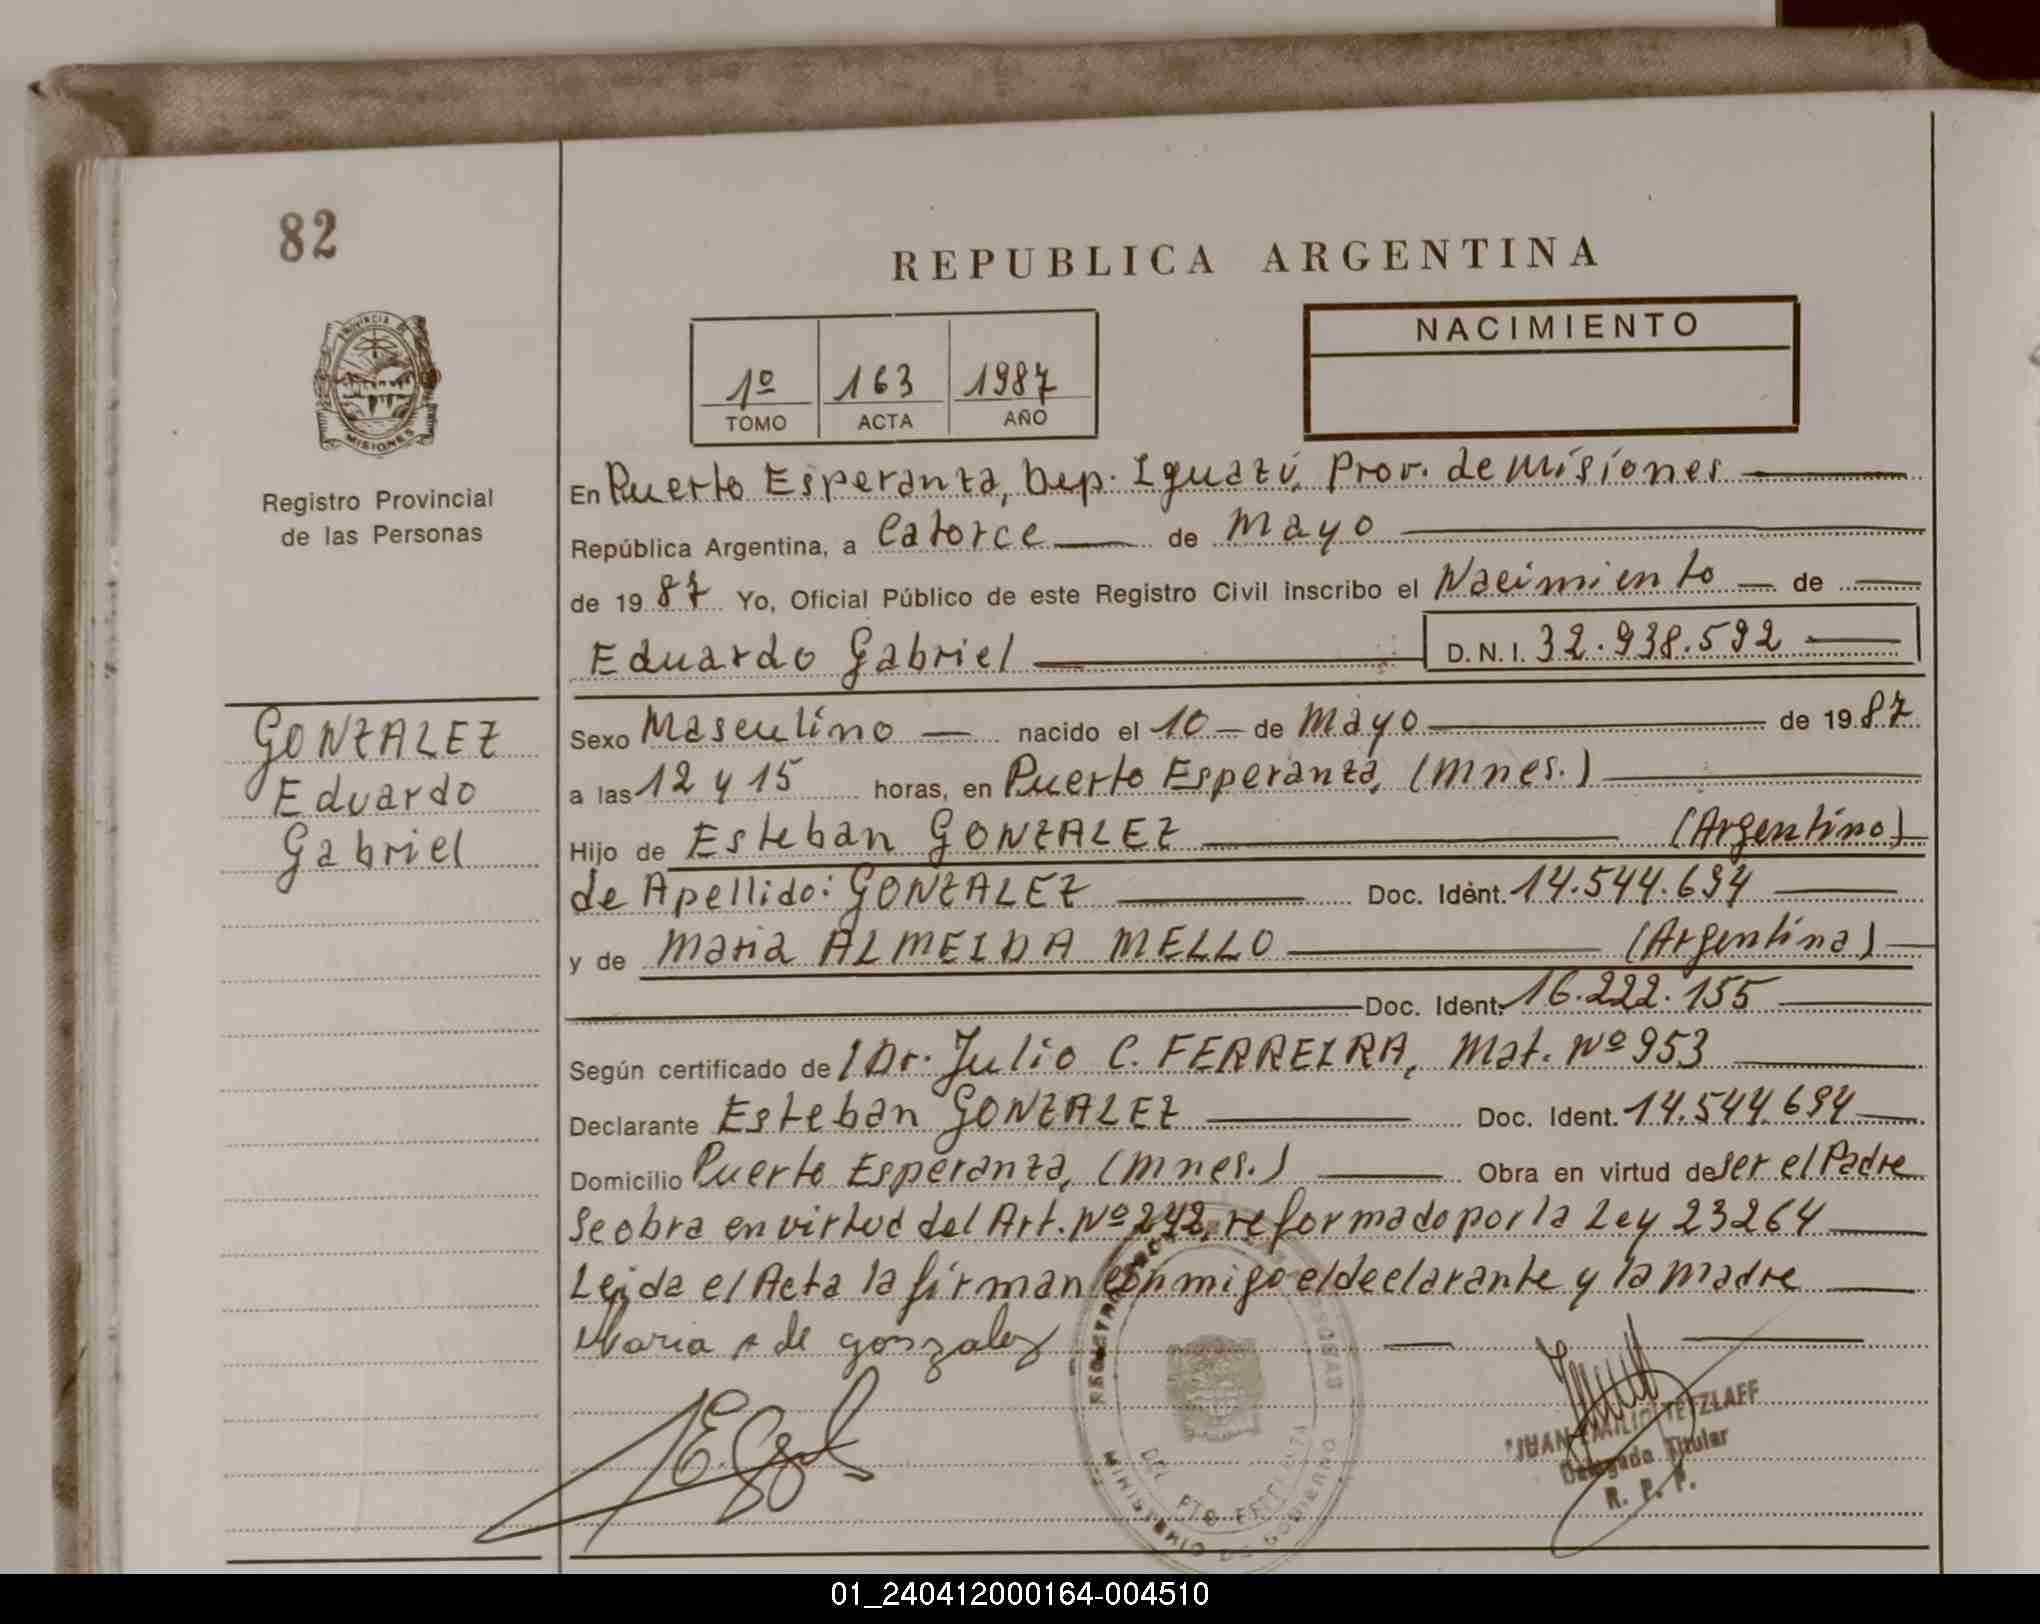 82
REPUBLICA ARGENTINA
PROVINCIA DE
MISIONES
Registro Provincial
de las Personas
1º 163 1987
TOMO ACTA AÑO
NACIMIENTO
En Puerto Esperanza, Dep. Iguazú, Prov. de Misiones
República Argentina, a Catorce de Mayo
de 1987 Yo, Oficial Público de este Registro Civil inscribo el Nacimiento de
Eduardo Gabriel D.N.I. 32.938.592
GONZALEZ
Eduardo
Gabriel
Sexo Masculino nacido el 10 de Mayo de 1987
a las 12 y 15 horas, en Puerto Esperanza, (Mnes.)
Hijo de Esteban GONZALEZ (Argentino)
de Apellido: GONZALEZ Doc. Ident. 14.544.694
y de Maria ALMEIDA MELLO (Argentina)
Doc. Ident. 16.222.155
Según certificado de l Dr. Julio C. FERREIRA, Mat. Nº 953
Declarante Esteban GONZALEZ Doc. Ident. 14.544.694
Domicilio Puerto Esperanza, (Mnes.) Obra en virtud de ser el Padre
Se obra en virtud del Art. Nº 242, reformado por la Ley 23264
Leida el Acta la firman conmigo el declarante y la Madre
Maria A de gonzalez
JUAN EMILIO TETZLAFF
Delegado Titular
R. P. P.
MINISTERIO DE GOBIERNO
01_240412000164-004510